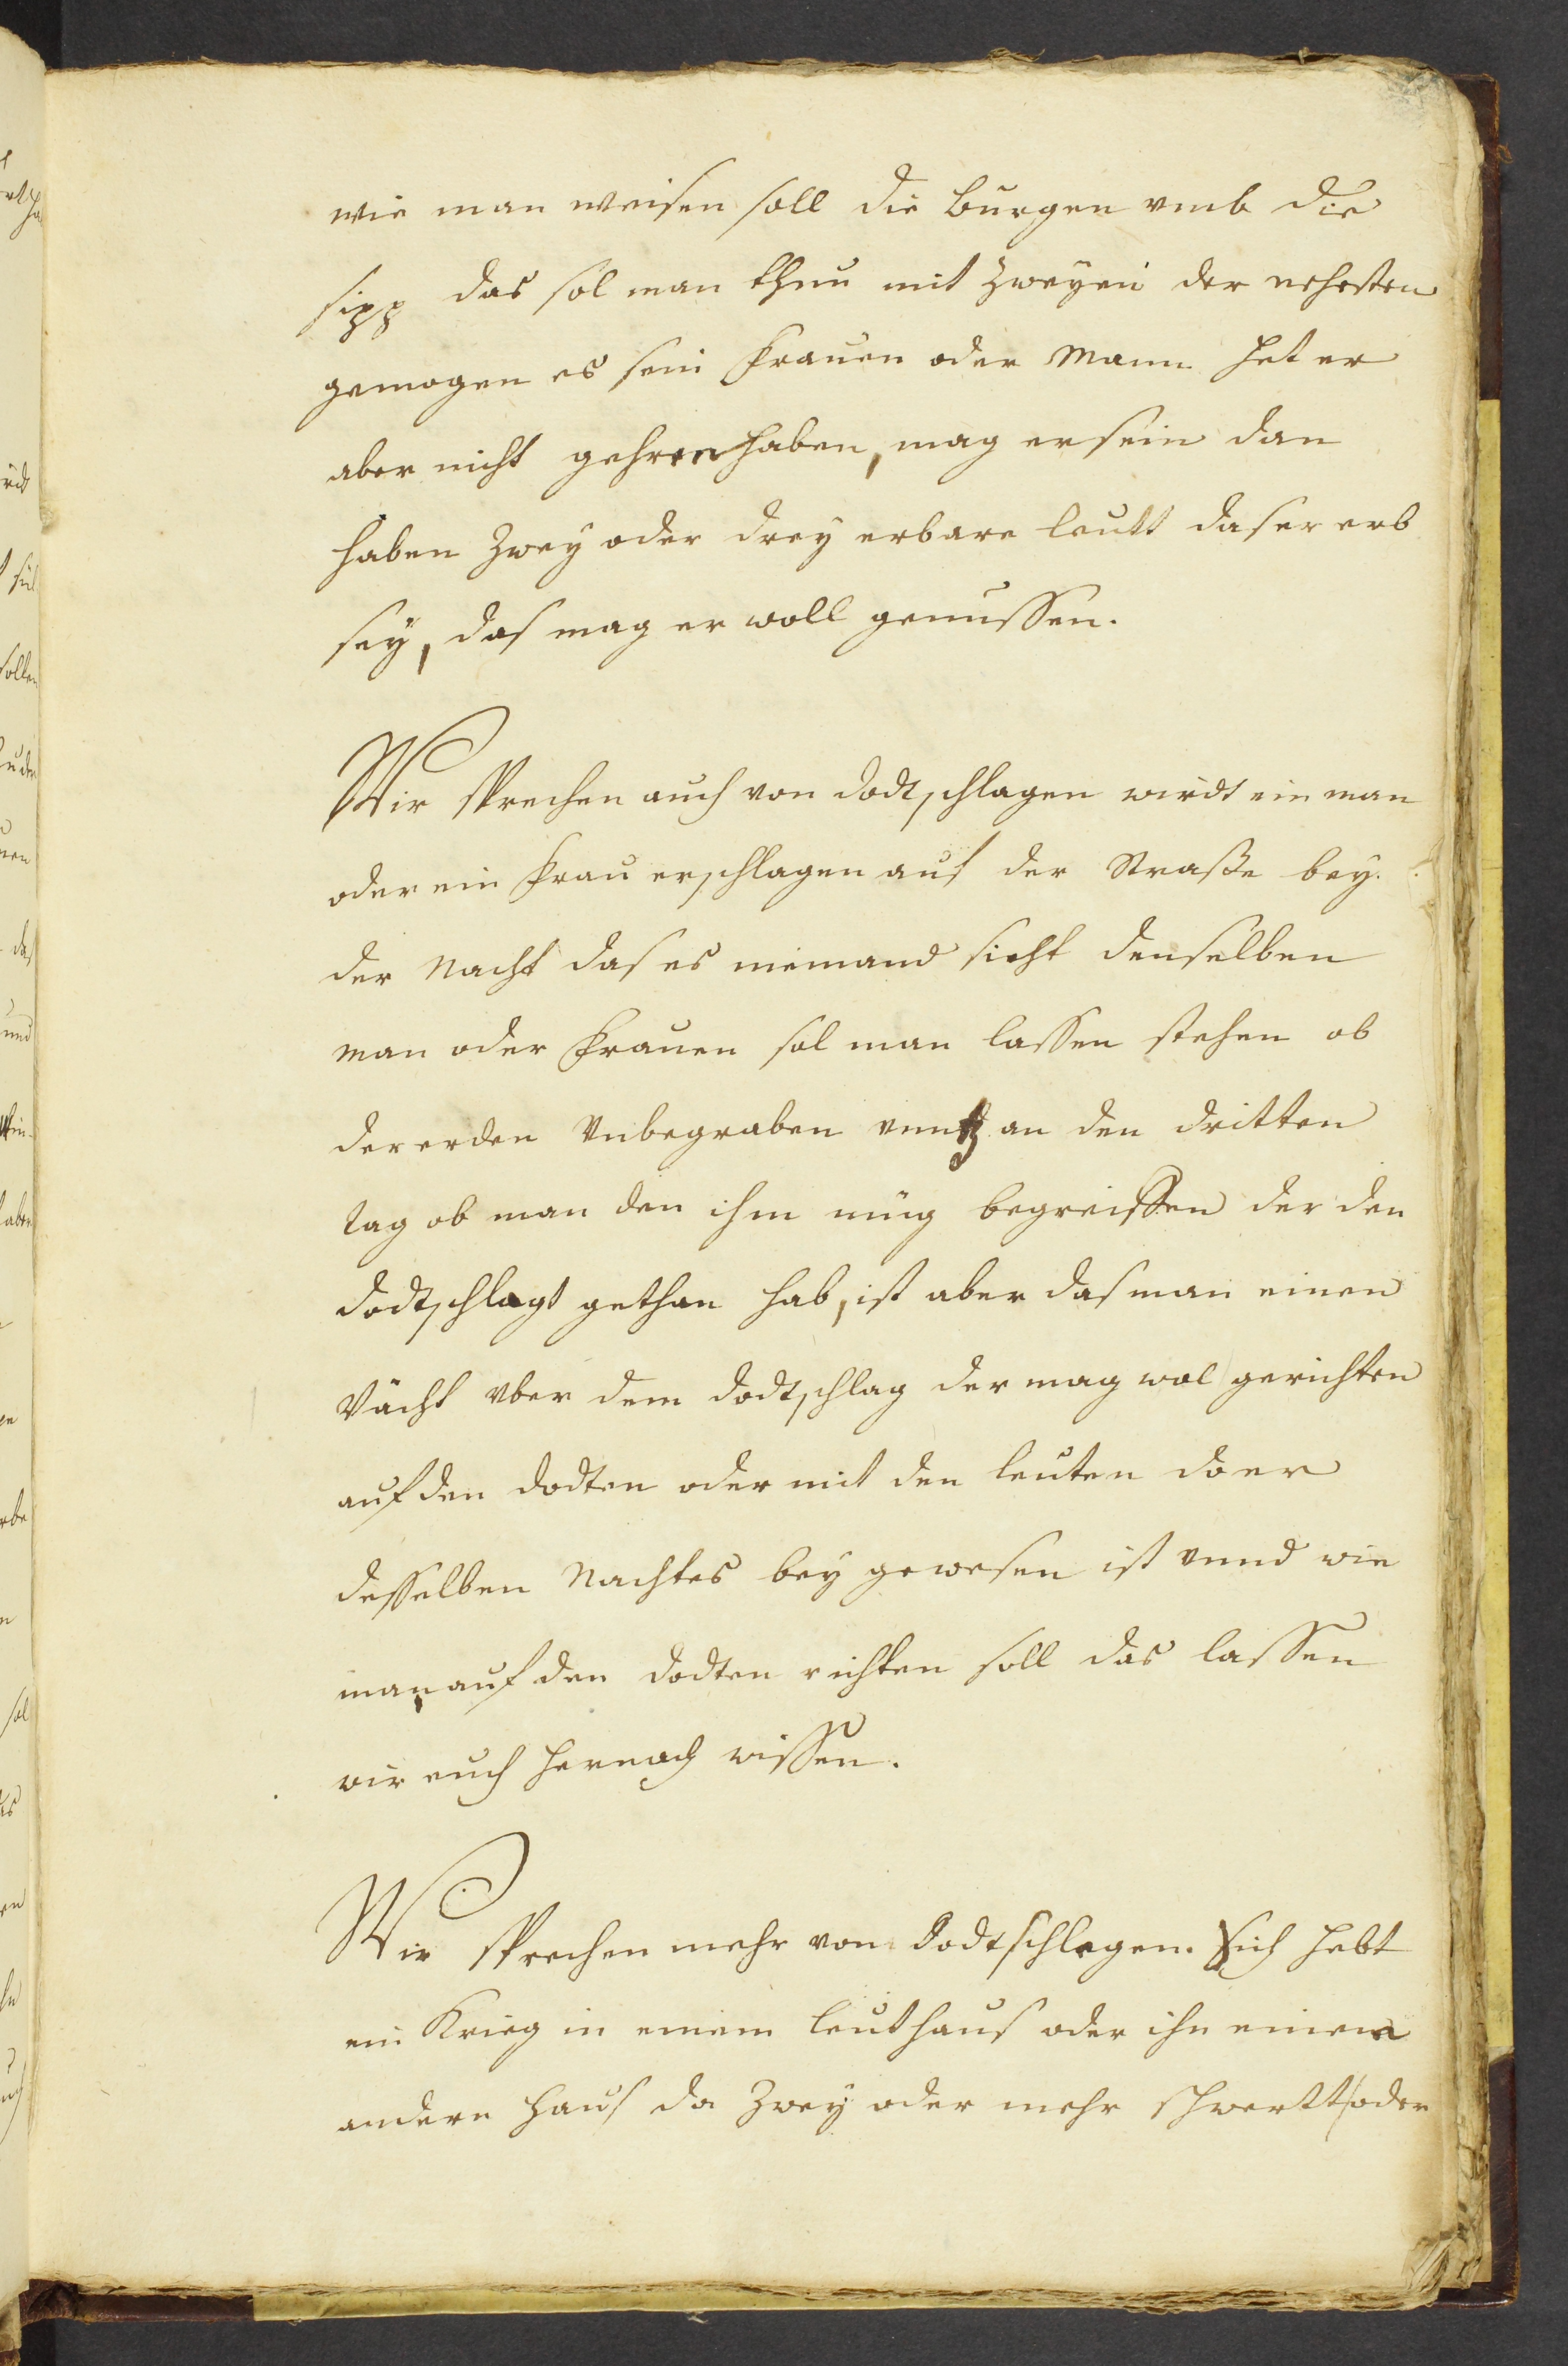 wie man weisen soll die Burgen vmb die
sipp das sol man thun mit zweyen der nehesten
gemogen es sein Frauen oder Mann het er
aber nicht gehren haben, mag er sein dan
haben zwey oder drey erbare leutt das er erb
sey, das mag er woll genussen.
Wir sprechen auch von dodtschlagen wirdt ein man
oder ein Frau erschlagen auf der Strasse bey
der Nacht das es niemand sicht denselben
man oder Frauen sol man lassen stehen ob
der erden Vnbegraben vnntz an den dritten
tag ob man den ihm müg begreissen der den
dodtschlagt gethan hab, ist aber das man einen
Vächt vber dem dodtschlag der mag wol gerichten
auf den dodten oder mit den leuten do er
desselben Nachtes bey gewesen ist vnnd wie
man auf den dodten richten soll das lassen
wir euch hernach wissen.
Wir sprechen mehr von dodtschlegen. Sich hebt
ein Krieg in einem leuthaus oder ihn einem
andern Haus da zwey oder mehr schwertt oder